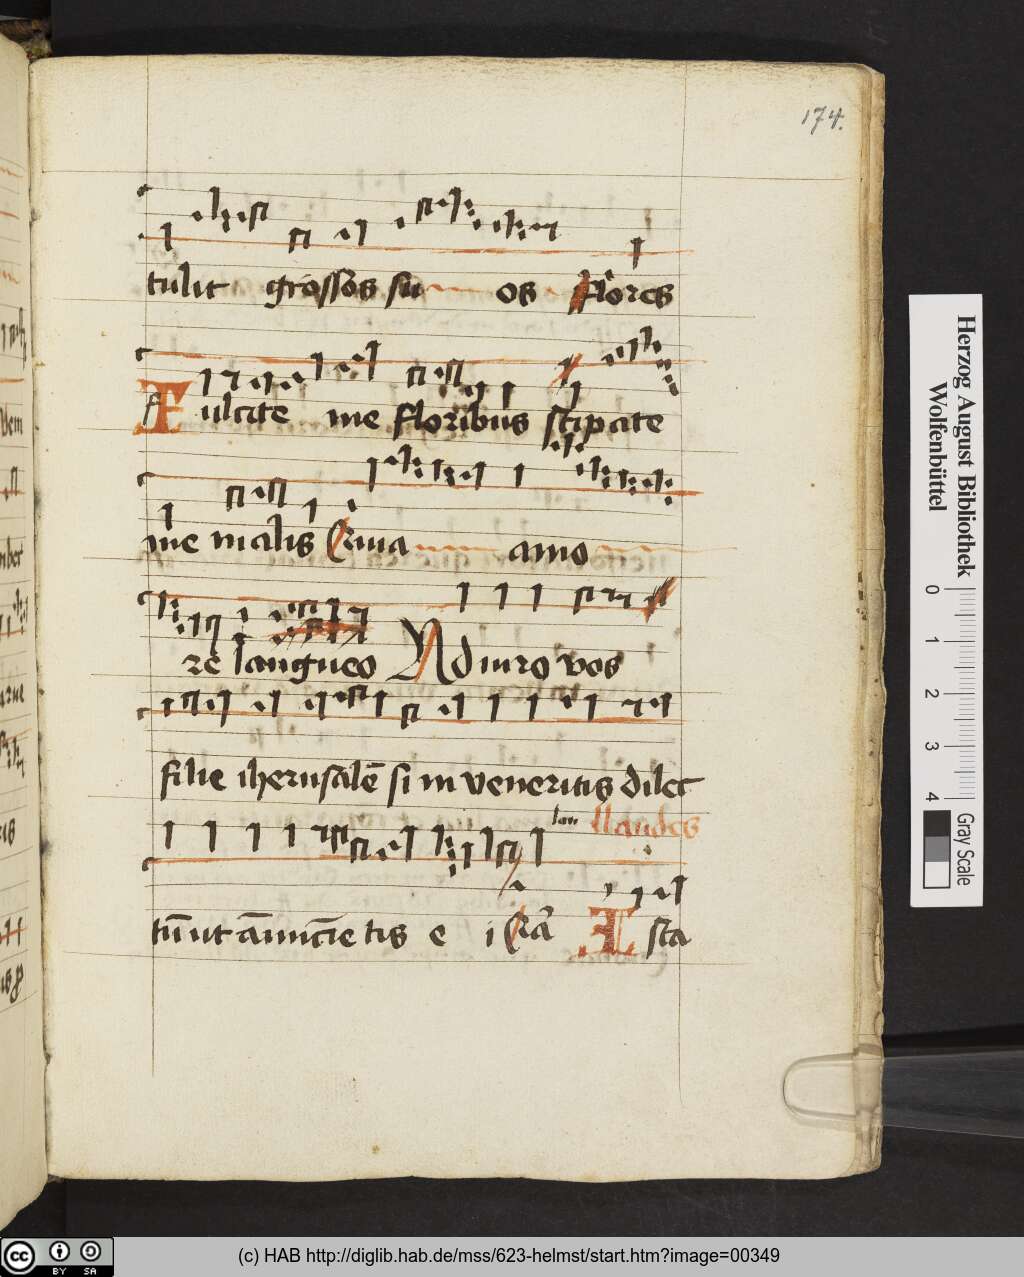 174.
tulit grossos su os flores
Fulcite me floribus stipate
me malis Quia amo
re langueo Adiuro vos
filie iherusalē si inveneritis dilec
lau llaudes
tūm ut ānūcie tis e i Quā Ista
Herzog August Bibliothek
Wolfenbüttel
0 1 2 3 4
Gray Scale
cc BY SA
(c) HAB http://diglib.hab.de/mss/623-helmst/start.htm?image=00349